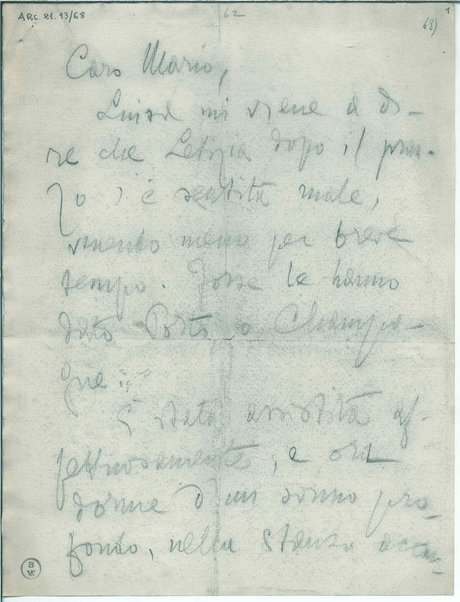 ARC 21. 13/68
62
68)
1
Caro Mario,
Luisa mi viene a di-
re che Letizia dopo il pran-
zo s'è sentita male,
venendo meno per breve
tempo. Forse le hanno
dato Porto o Champa-
gne.
È stata assistita af-
fettuosamente, e ora
dorme d'un sonno pro-
fondo, nella stanza accan-